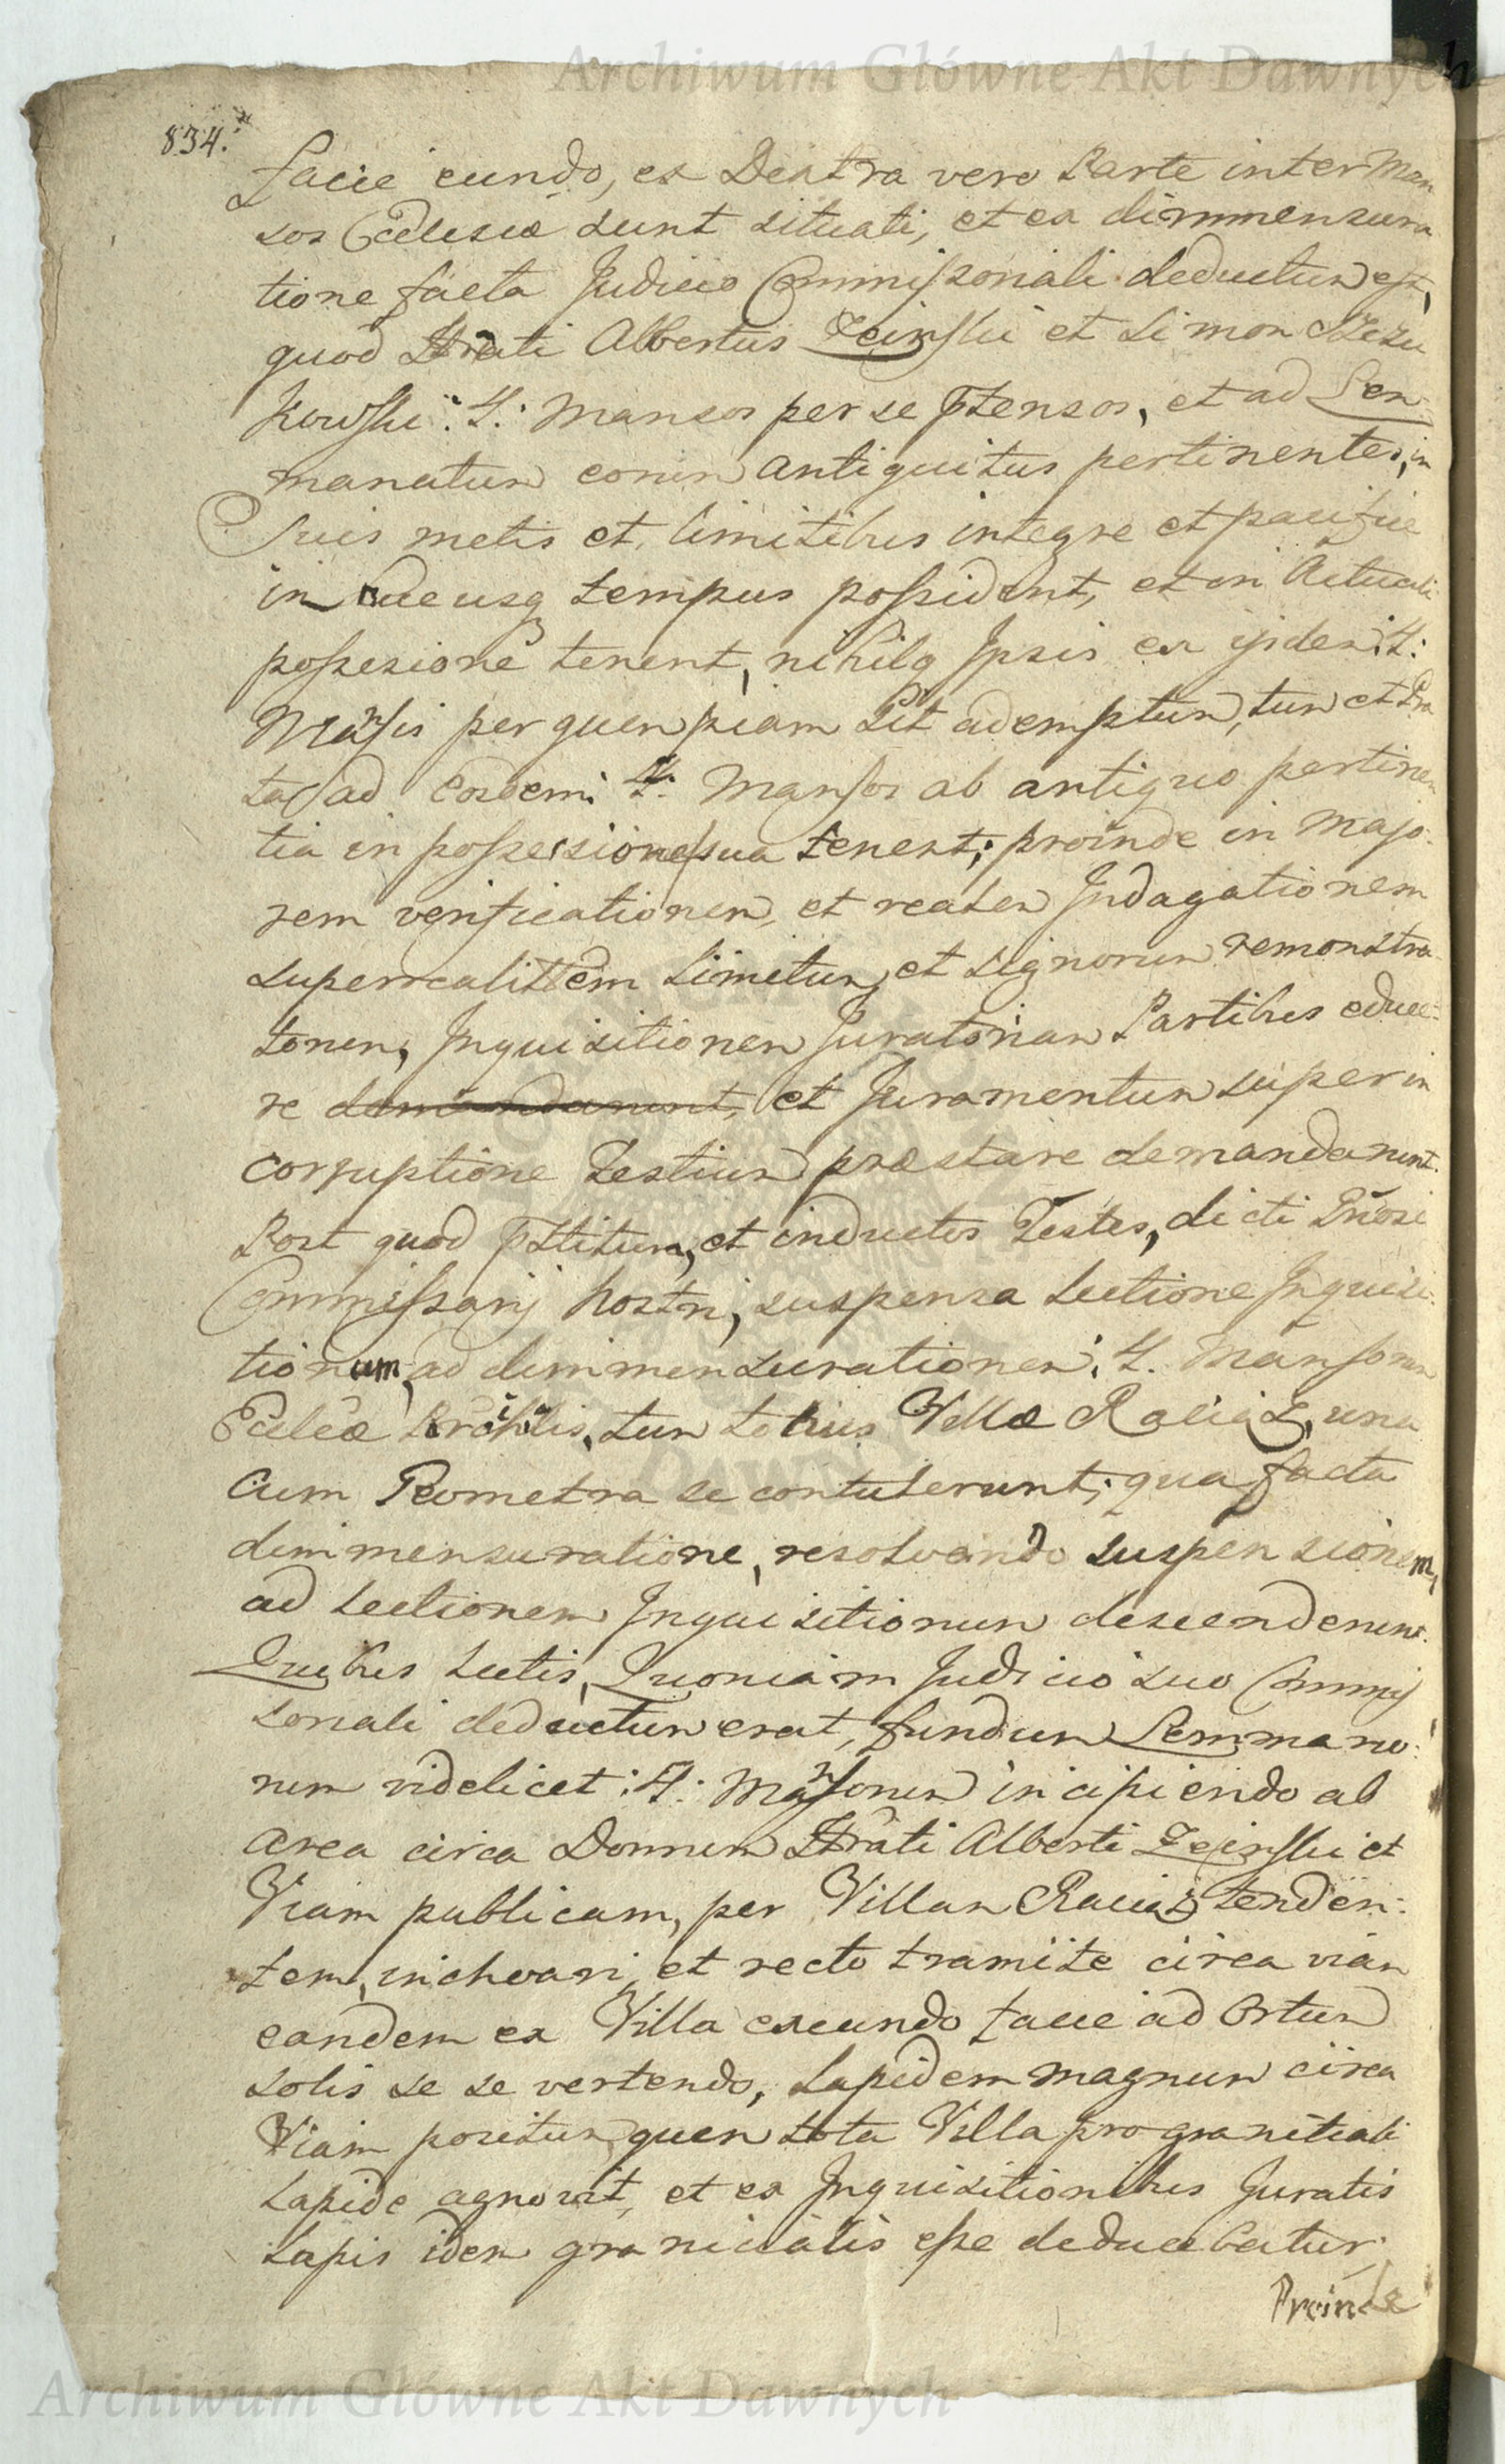 Archiwum Główne Akt Dawnych
834.
facie eundo, ex Dextra vero Parte inter Man
sos Ecclesiæ sunt situati, et ex dimmensura
tione facta Judicio Commissoriali deductum est,
quod Strati Albertus et Simon
Kowski :4: Mansos per se ptensos, et ad Sem
manatum eorum antiquitus pertinentes, in
Suis metis et limitibus integre et pacifice
in hucusq tempus possident, et in Actuali
possesione tenent, nihilq Ipsis ex ijsdem :4:
Mansis per quempiam sit ademptum, tum et Pra
ta ad eosdem :4: Mansos ab antiquo pertinen
tia in possessione sua tenent; proinde in Majo
rem verificationem, et realem Indagationem
super realitatem limitum, et signorum remonstra
tionem, Inquisitionem Juratoriam Partibus educe
re demandarunt, et Juramentum super in
corruptione Testium præstare demandarunt.
Post quod pstitum, et inductos Testes, dicti Gnosi
Commissarij Nostri, suspensa lectione Inquisi
tionum, ad dimmensurationem :4. Mansorum
Eccleæ Prchlis, tum totius Villæ Raciąż, una
cum Geometra se contulerunt; qua facta
dimmensuratione, resolvendo suspensionem,
ad lectionem Inquisitionum descenderunt.
Quibus lectis, Quoniam Judicio suo Commis
soriali deductum erat, fundum Semmano
rum videlicet :4: Mansorum incipiendo ab
area circa Domum Strati Alberti et
Viam publicam, per Villam Raciąż tenden
tem, inchoari, et recto tramite circa viam
eandem ex Villa exeundo facie ad Ortum
solis se se vertendo, Lapidem magnum circa
Viam positum, quem tota Villa pro granitiali
Lapide agnovit, et ex Inquisitionibus Juratis
Lapis idem granicialis esse deducebatur;
Proinde
Archiwum Główne Akt Dawnych